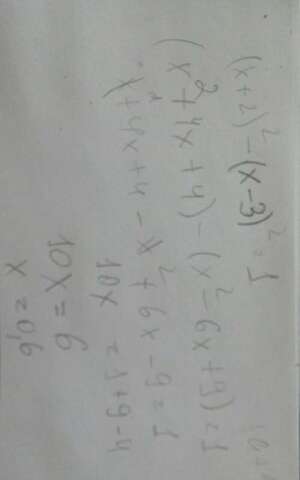 (x+2)² - (x-3)² = 1
(x² + 4x + 4) - (x² - 6x + 9) = 1
x² + 4x + 4 - x² + 6x - 9 = 1
10x = 1 + 9 - 4
10x = 6
x = 0,6